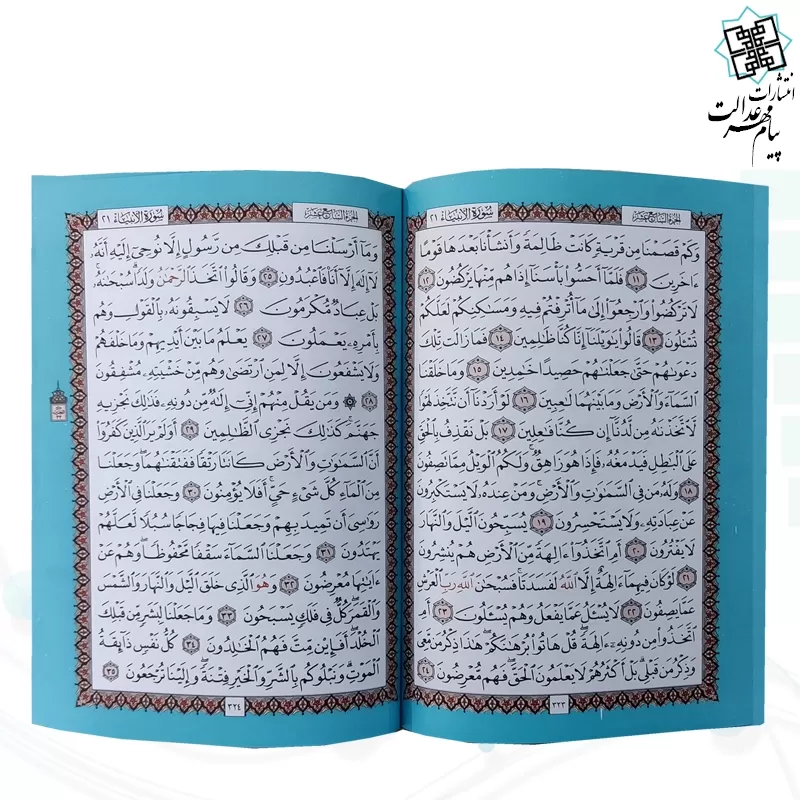 انتشارات
پیام مهر عدالت
الجزء السابع عشر
سورة الأنبياء ٢١
وَكَمْ قَصَمْنَا مِن قَرْيَةٍ كَانَتْ ظَالِمَةً وَأَنشَأْنَا بَعْدَهَا قَوْمًا
ءَاخَرِينَ ١١ فَلَمَّآ أَحَسُّوا۟ بَأْسَنَآ إِذَا هُم مِّنْهَا يَرْكُضُونَ ١٢
لَا تَرْكُضُوا۟ وَٱرْجِعُوٓا۟ إِلَىٰ مَآ أُتْرِفْتُمْ فِيهِ وَمَسَـٰكِنِكُمْ لَعَلَّكُمْ
تُسْـَٔلُونَ ١٣ قَالُوا۟ يَـٰوَيْلَنَآ إِنَّا كُنَّا ظَـٰلِمِينَ ١٤ فَمَا زَالَت تِّلْكَ
دَعْوَىٰهُمْ حَتَّىٰ جَعَلْنَـٰهُمْ حَصِيدًا خَـٰمِدِينَ ١٥ وَمَا خَلَقْنَا
ٱلسَّمَآءَ وَٱلْأَرْضَ وَمَا بَيْنَهُمَا لَـٰعِبِينَ ١٦ لَوْ أَرَدْنَآ أَن نَّتَّخِذَ لَهْوًا
لَّٱتَّخَذْنَـٰهُ مِن لَّدُنَّآ إِن كُنَّا فَـٰعِلِينَ ١٧ بَلْ نَقْذِفُ بِٱلْحَقِّ
عَلَى ٱلْبَـٰطِلِ فَيَدْمَغُهُۥ فَإِذَا هُوَ زَاهِقٌ ۚ وَلَكُمُ ٱلْوَيْلُ مِمَّا تَصِفُونَ
١٨ وَلَهُۥ مَن فِى ٱلسَّمَـٰوَٰتِ وَٱلْأَرْضِ ۚ وَمَنْ عِندَهُۥ لَا يَسْتَكْبِرُونَ
عَنْ عِبَادَتِهِۦ وَلَا يَسْتَحْسِرُونَ ١٩ يُسَبِّحُونَ ٱلَّيْلَ وَٱلنَّهَارَ
لَا يَفْتُرُونَ ٢٠ أَمِ ٱتَّخَذُوٓا۟ ءَالِهَةً مِّنَ ٱلْأَرْضِ هُمْ يُنشِرُونَ
٢١ لَوْ كَانَ فِيهِمَآ ءَالِهَةٌ إِلَّا ٱللَّهُ لَفَسَدَتَا ۚ فَسُبْحَـٰنَ ٱللَّهِ رَبِّ ٱلْعَرْشِ
عَمَّا يَصِفُونَ ٢٢ لَا يُسْـَٔلُ عَمَّا يَفْعَلُ وَهُمْ يُسْـَٔلُونَ ٢٣ أَمِ
ٱتَّخَذُوا۟ مِن دُونِهِۦٓ ءَالِهَةً ۖ قُلْ هَاتُوا۟ بُرْهَـٰنَكُمْ ۖ هَـٰذَا ذِكْرُ مَن مَّعِىَ
وَذِكْرُ مَن قَبْلِى ۗ بَلْ أَكْثَرُهُمْ لَا يَعْلَمُونَ ٱلْحَقَّ ۖ فَهُم مُّعْرِضُونَ ٢٤
٣٢٣
الجزء السابع عشر
سورة الأنبياء ٢١
وَمَآ أَرْسَلْنَا مِن قَبْلِكَ مِن رَّسُولٍ إِلَّا نُوحِىٓ إِلَيْهِ أَنَّهُۥ
لَآ إِلَـٰهَ إِلَّآ أَنَا۠ فَٱعْبُدُونِ ٢٥ وَقَالُوا۟ ٱتَّخَذَ ٱلرَّحْمَـٰنُ وَلَدًا ۗ سُبْحَـٰنَهُۥ ۚ
بَلْ عِبَادٌ مُّكْرَمُونَ ٢٦ لَا يَسْبِقُونَهُۥ بِٱلْقَوْلِ وَهُم
بِأَمْرِهِۦ يَعْمَلُونَ ٢٧ يَعْلَمُ مَا بَيْنَ أَيْدِيهِمْ وَمَا خَلْفَهُمْ
وَلَا يَشْفَعُونَ إِلَّا لِمَنِ ٱرْتَضَىٰ وَهُم مِّنْ خَشْيَتِهِۦ مُشْفِقُونَ
٢٨ ۞ وَمَن يَقُلْ مِنْهُمْ إِنِّىٓ إِلَـٰهٌ مِّن دُونِهِۦ فَذَٰلِكَ نَجْزِيهِ
جَهَنَّمَ ۚ كَذَٰلِكَ نَجْزِى ٱلظَّـٰلِمِينَ ٢٩ أَوَلَمْ يَرَ ٱلَّذِينَ كَفَرُوٓا۟
أَنَّ ٱلسَّمَـٰوَٰتِ وَٱلْأَرْضَ كَانَتَا رَتْقًا فَفَتَقْنَـٰهُمَا ۖ وَجَعَلْنَا
مِنَ ٱلْمَآءِ كُلَّ شَىْءٍ حَىٍّ ۖ أَفَلَا يُؤْمِنُونَ ٣٠ وَجَعَلْنَا فِى ٱلْأَرْضِ
رَوَٰسِىَ أَن تَمِيدَ بِهِمْ وَجَعَلْنَا فِيهَا فِجَاجًا سُبُلًا لَّعَلَّهُمْ
يَهْتَدُونَ ٣١ وَجَعَلْنَا ٱلسَّمَآءَ سَقْفًا مَّحْفُوظًا ۖ وَهُمْ عَنْ
ءَايَـٰتِهَا مُعْرِضُونَ ٣٢ وَهُوَ ٱلَّذِى خَلَقَ ٱلَّيْلَ وَٱلنَّهَارَ وَٱلشَّمْسَ
وَٱلْقَمَرَ ۖ كُلٌّ فِى فَلَكٍ يَسْبَحُونَ ٣٣ وَمَا جَعَلْنَا لِبَشَرٍ مِّن قَبْلِكَ
ٱلْخُلْدَ ۖ أَفَإِي۟ن مِّتَّ فَهُمُ ٱلْخَـٰلِدُونَ ٣٤ كُلُّ نَفْسٍ ذَآئِقَةُ
ٱلْمَوْتِ ۗ وَنَبْلُوكُم بِٱلشَّرِّ وَٱلْخَيْرِ فِتْنَةً ۖ وَإِلَيْنَا تُرْجَعُونَ ٣٥
٣٢٤